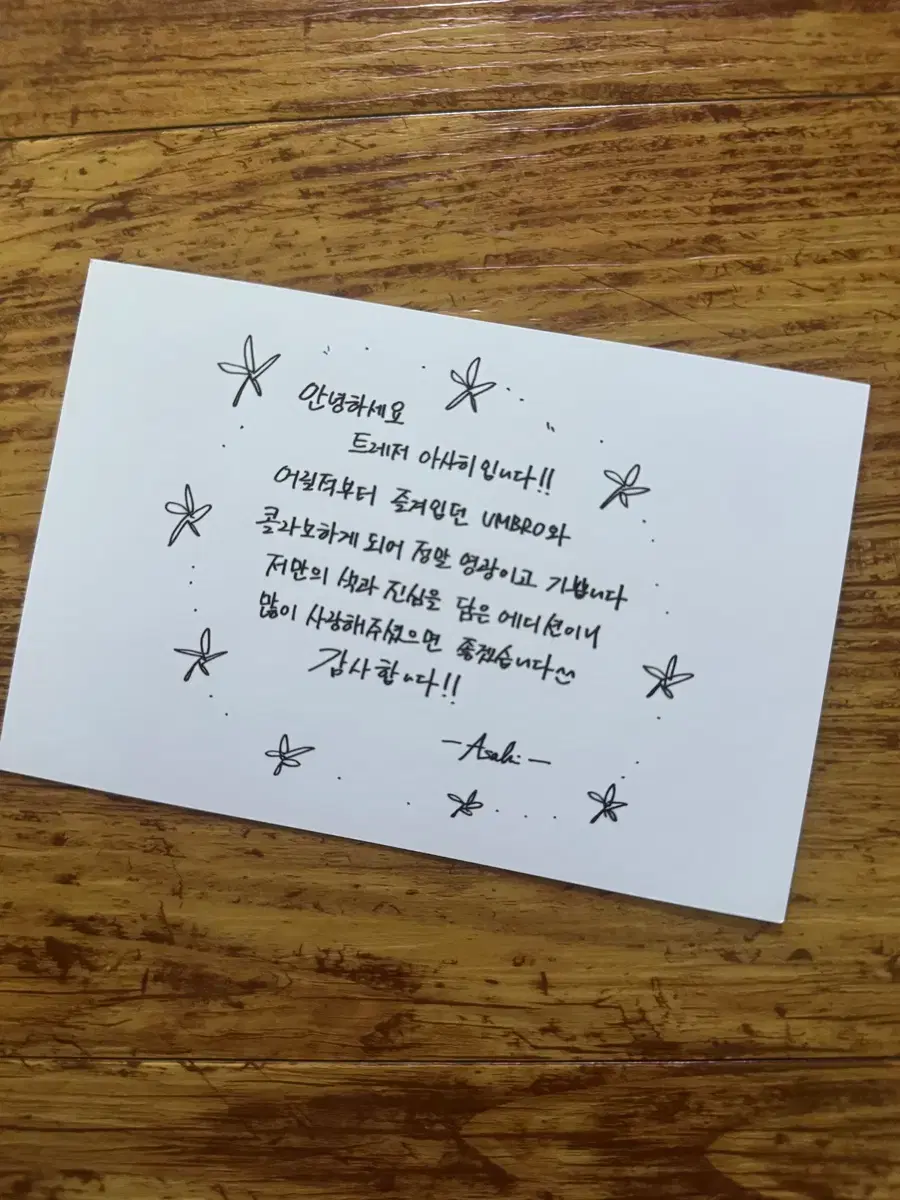 안녕하세요
트레저 아사히입니다!!
어릴적부터 즐겨입던 UMBRO와
콜라보하게 되어 정말 영광이고 기쁩니다
저만의 색과 진심을 담은 에디션이니
많이 사랑해주셨으면 좋겠습니다
감사합니다!!
-Asahi-